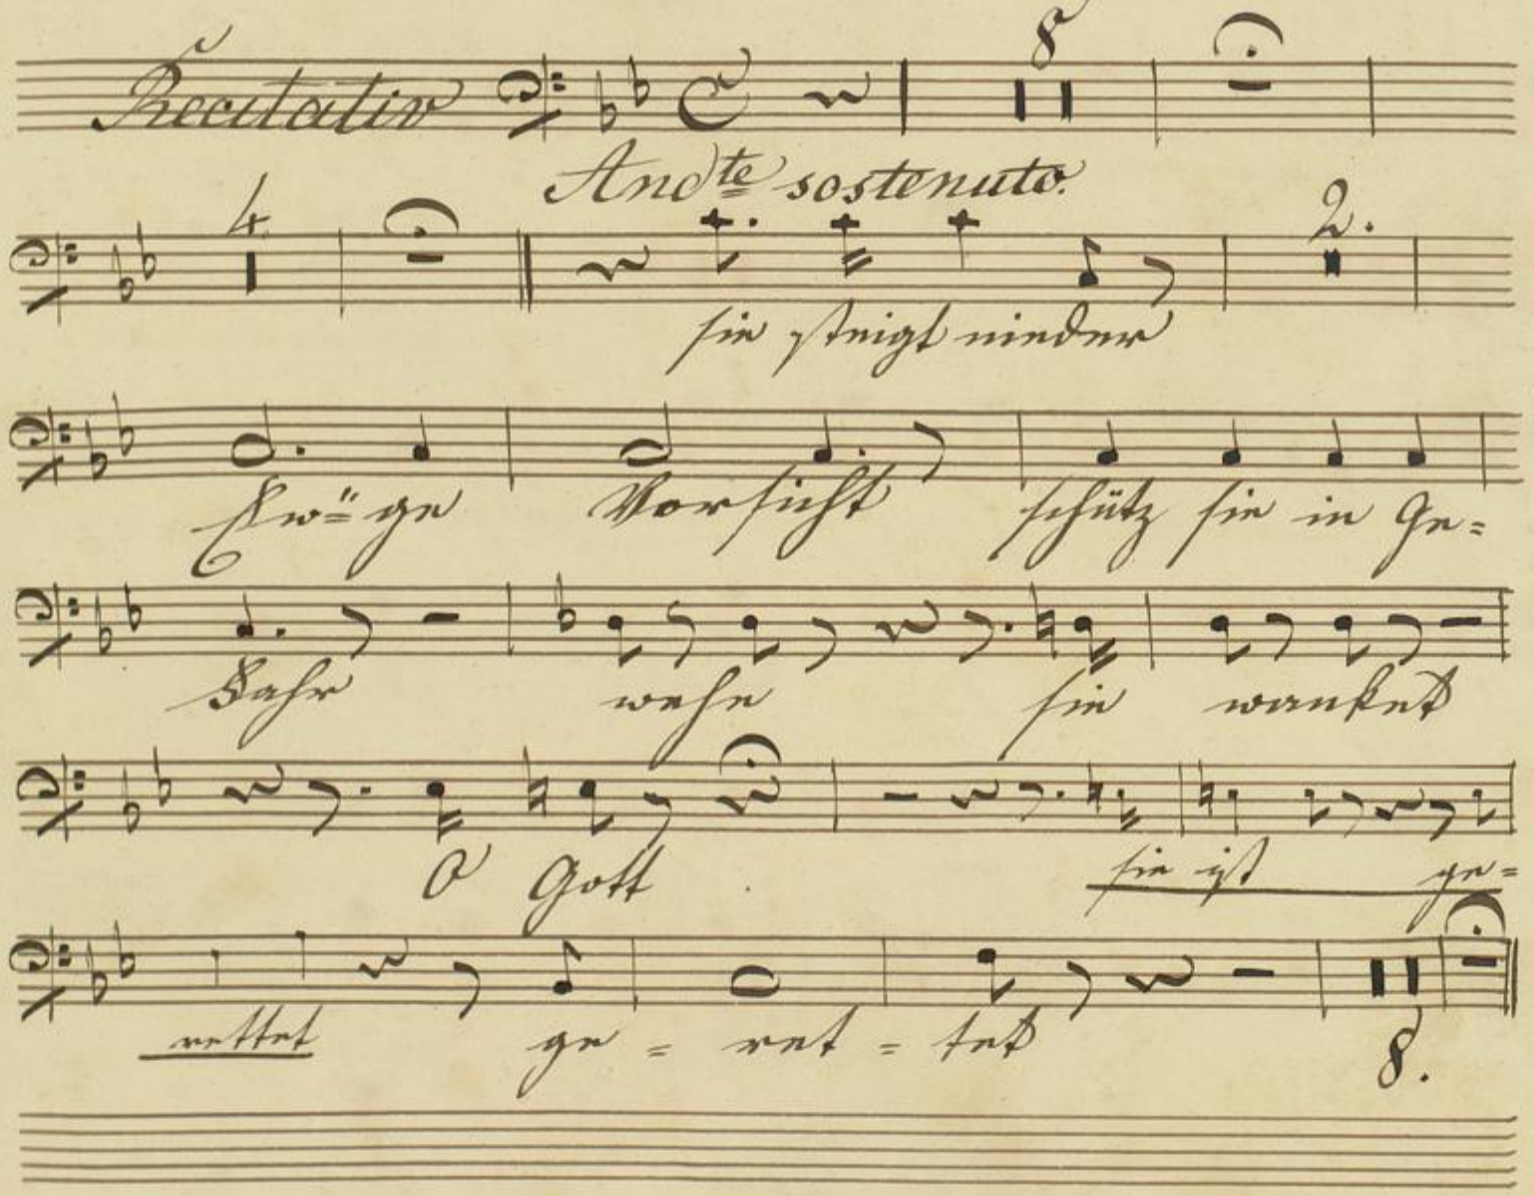 Recitativ 8
Andte sostenuto.
4 2.
sie steigt nieder
Ew= ge Vorsicht schütz sie in Ge=
fahr wehe sie wanket
O Gott sie ist ge=
rettet ge = ret = tet
8.